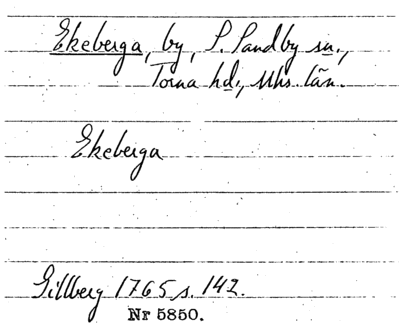 Ekeberga, by, S. Sandby sn.,
Torna hd., Mhs län.
Ekeberga
Gillberg 1765 s. 142.
Nr 5850.